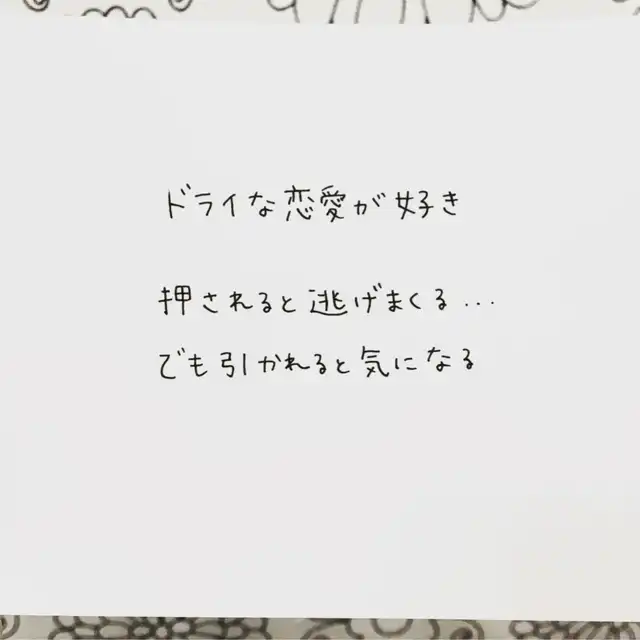 ドライな恋愛が好き
押されると逃げまくる...
でも引かれると気になる